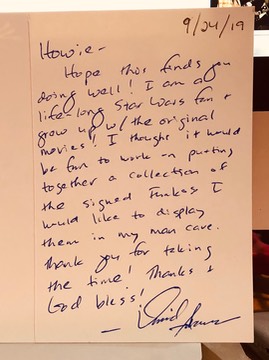 9/24/19
Howie-
Hope this finds you
doing well! I am a
life-long Star Wars fan &
grew up w/ the original
movies! I thought it would
be fun to work on putting
together a collection of
the signed Funkos I
would like to display
them in my man cave.
Thank you for taking
the time! Thanks &
God bless!
- David